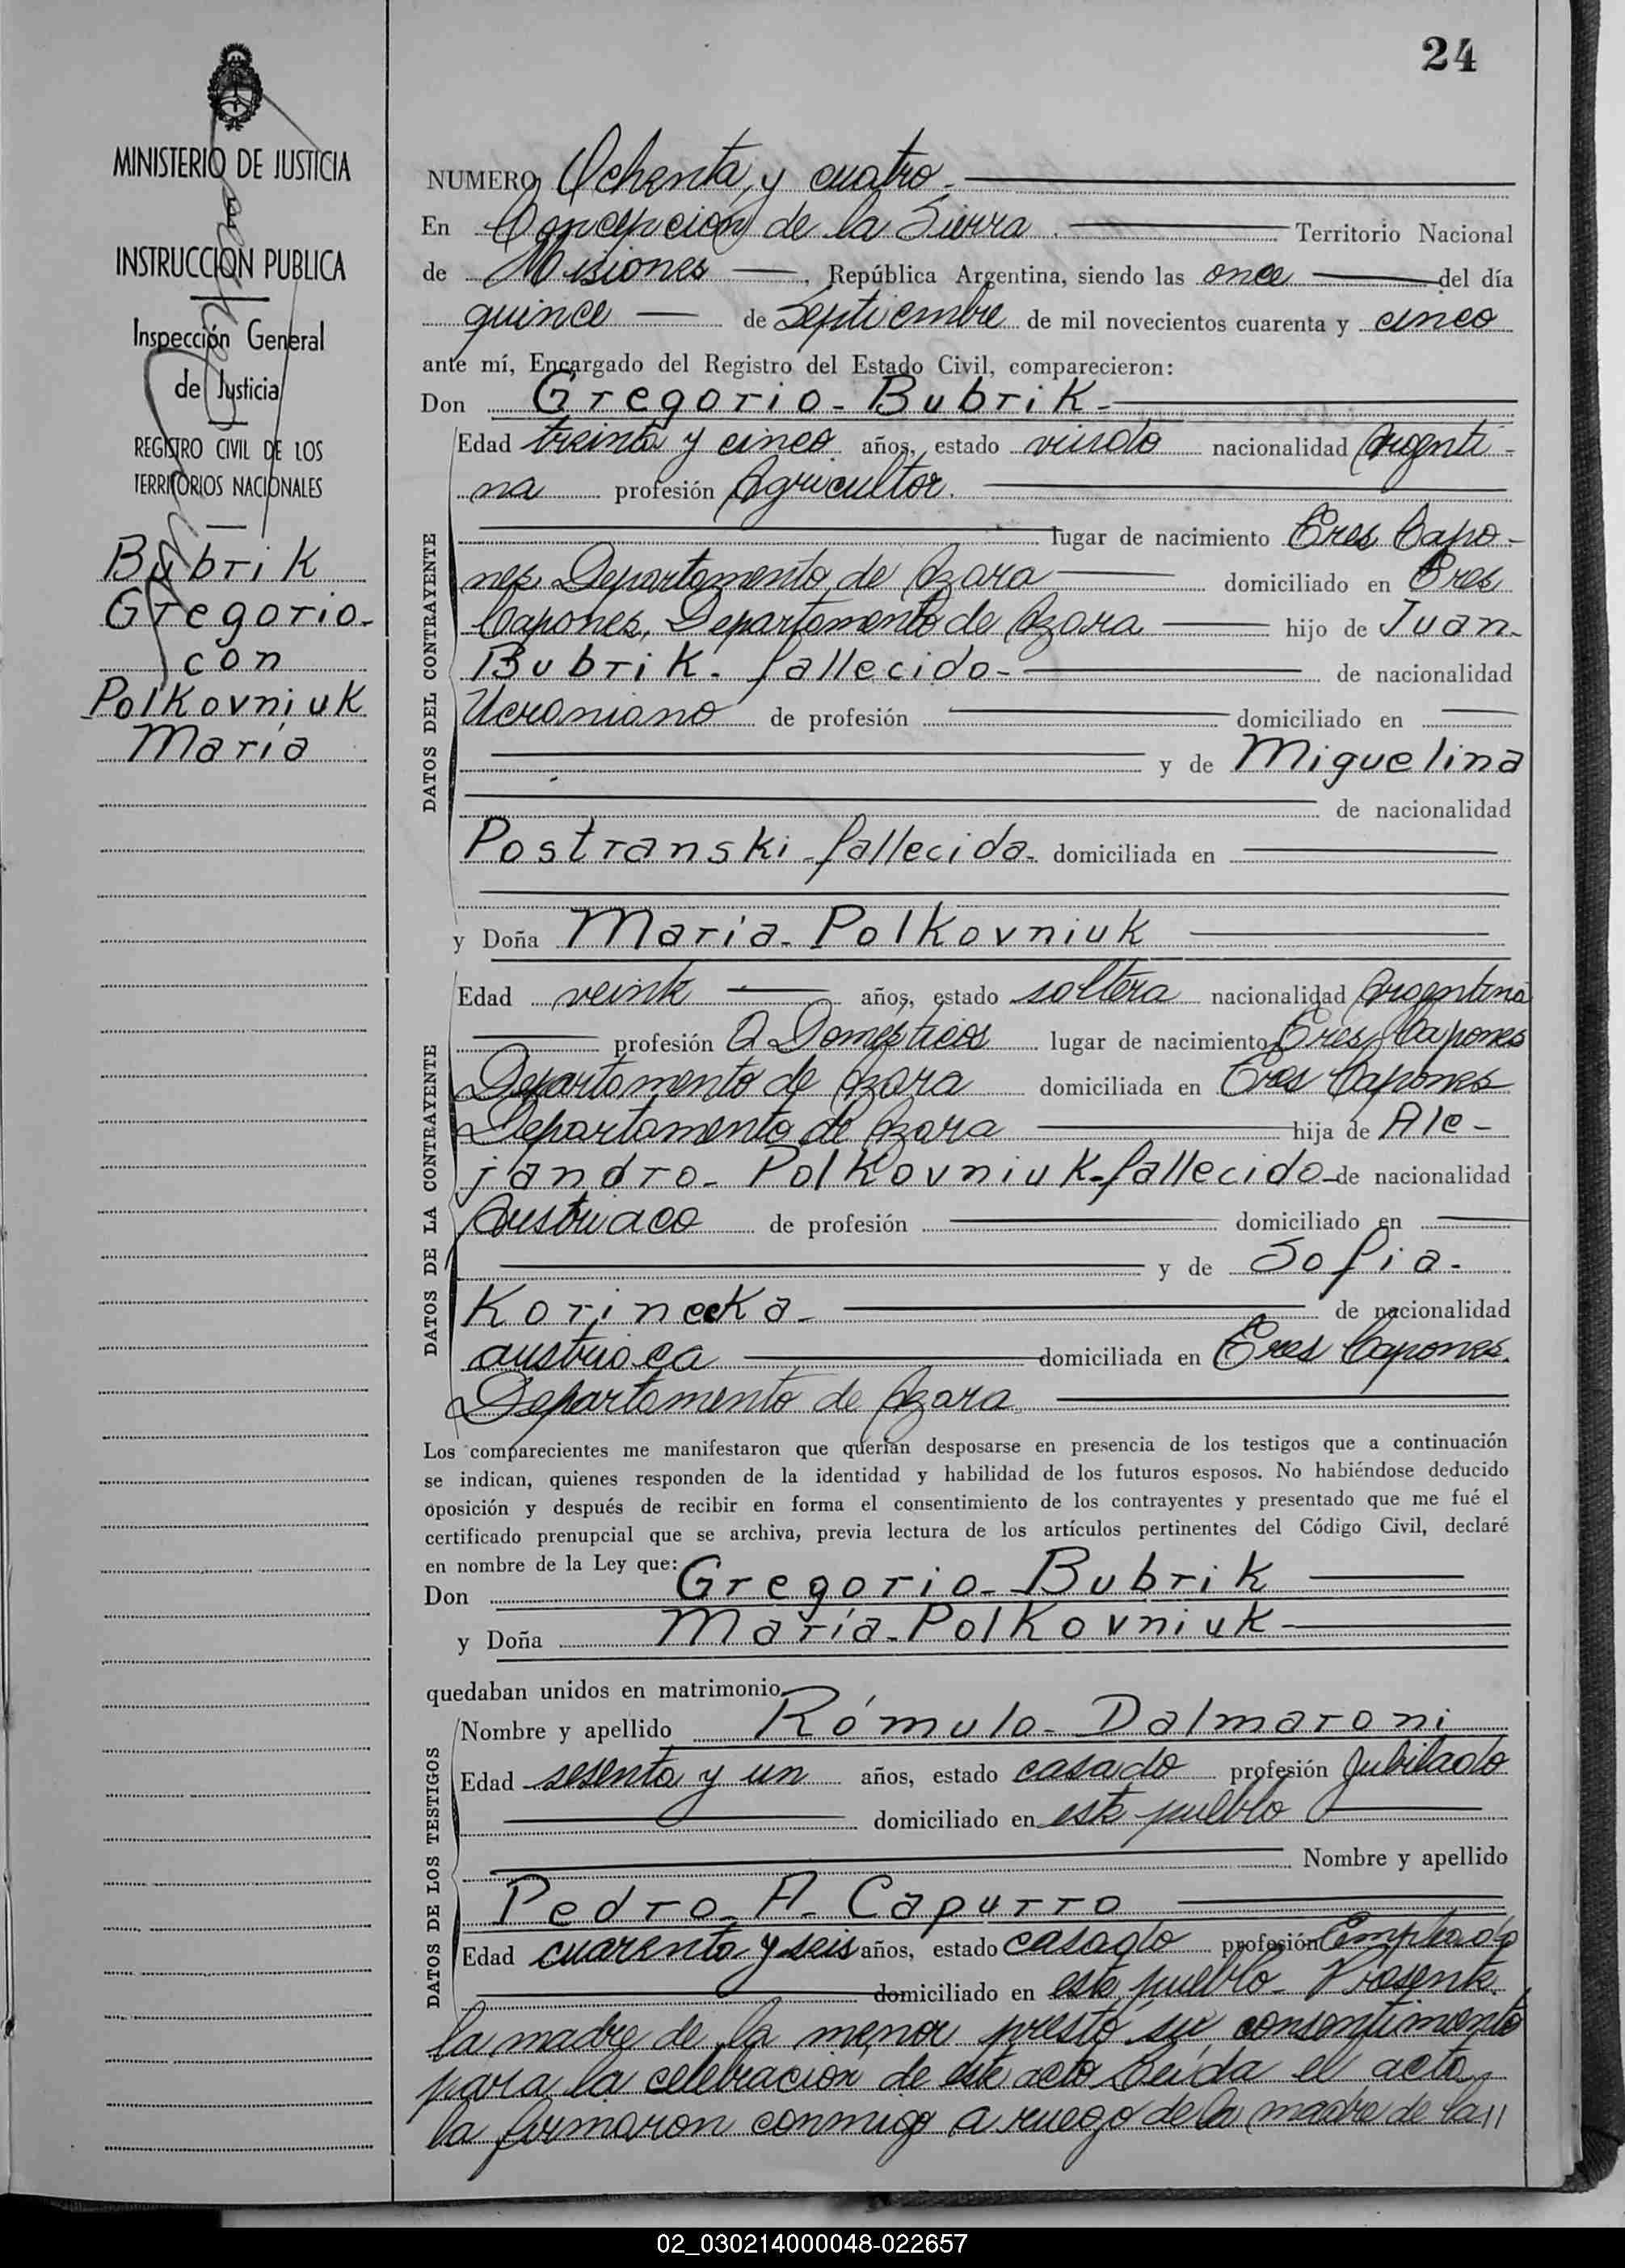 24
MINISTERIO DE JUSTICIA
E
INSTRUCCION PUBLICA
Inspección General
de Justicia
REGISTRO CIVIL DE LOS
TERRITORIOS NACIONALES
Bubrik
Gregorio-
con
Polkovniuk
María
NUMERO Ochenta y cuatro.
En Concepción de la Sierra. Territorio Nacional
de Misiones, República Argentina, siendo las once del día
quince de Septiembre de mil novecientos cuarenta y cinco
ante mí, Encargado del Registro del Estado Civil, comparecieron:
Don Gregorio- Bubrik-
DATOS DEL CONTRAYENTE
Edad treinta y cinco años, estado viudo nacionalidad Argenti-
na profesión Agricultor.
lugar de nacimiento Tres Capo-
nes Departamento de Azara domiciliado en Tres
Capones, Departamento de Azara hijo de Juan-
Bubrik- fallecido- de nacionalidad
Ucraniano de profesión domiciliado en
y de Miguelina
de nacionalidad
Postranski-fallecida- domiciliada en
y Doña Maria- Polkovniuk
DATOS DE LA CONTRAYENTE
Edad veinte años, estado soltera nacionalidad Argentina
profesión Q Domésticos lugar de nacimiento Tres Capones
Departamento de Azara domiciliada en Tres Capones
Departamento de Azara hija de Ale-
jandro- Polkovniuk-fallecido- de nacionalidad
Austriaco de profesión domiciliado en
y de Sofia-
Korinecka- de nacionalidad
austriaca domiciliada en Tres Capones.
Departamento de Azara
Los comparecientes me manifestaron que querían desposarse en presencia de los testigos que a continuación
se indican, quienes responden de la identidad y habilidad de los futuros esposos. No habiéndose deducido
oposición y después de recibir en forma el consentimiento de los contrayentes y presentado que me fué el
certificado prenupcial que se archiva, previa lectura de los artículos pertinentes del Código Civil, declaré
en nombre de la Ley que:
Don Gregorio- Bubrik
y Doña María-Polkovniuk-
quedaban unidos en matrimonio
DATOS DE LOS TESTIGOS
Nombre y apellido Rómulo- Dalmaroni
Edad sesenta y un años, estado casado profesión Jubilado
domiciliado en este pueblo
Nombre y apellido
Pedro- A- Capurro
Edad cuarenta y seis años, estado casado profesión Empleado
domiciliado en este pueblo- Presente
la madre de la menor prestó su consentimiento
para la celebración de este acto Leída el acta
la firmaron conmigo a ruego de la madre de la //
02_030214000048-022657